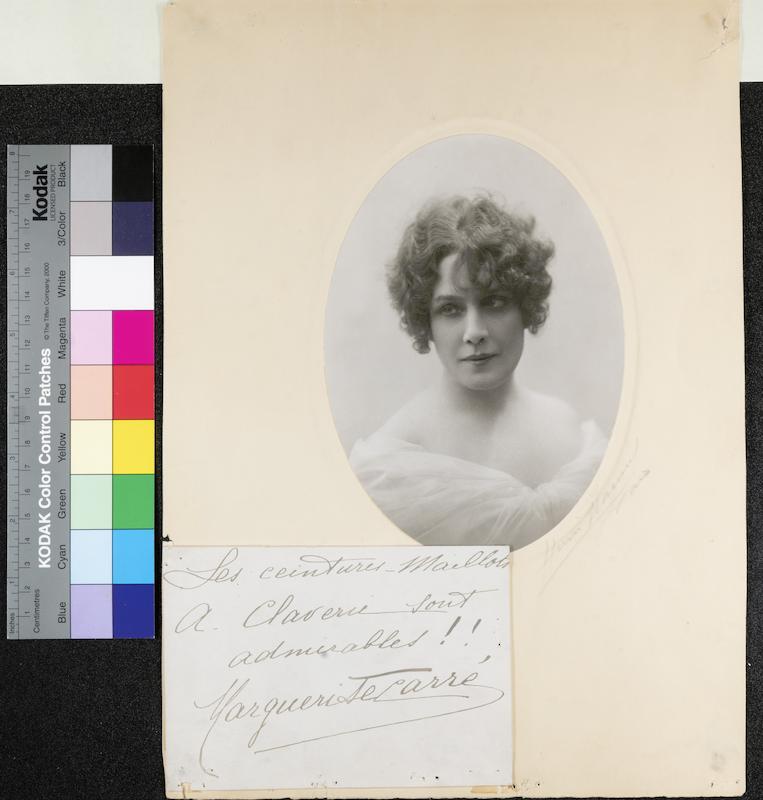 Les ceintures-Maillots
A. Claverie sont
admirables!!
Marguerite Carré
Kodak
LICENSED PRODUCT
KODAK Color Control Patches
© The Tiffen Company, 2000
Inches
Centimetres
Blue
Cyan
Green
Yellow
Red
Magenta
White
3/Color
Black